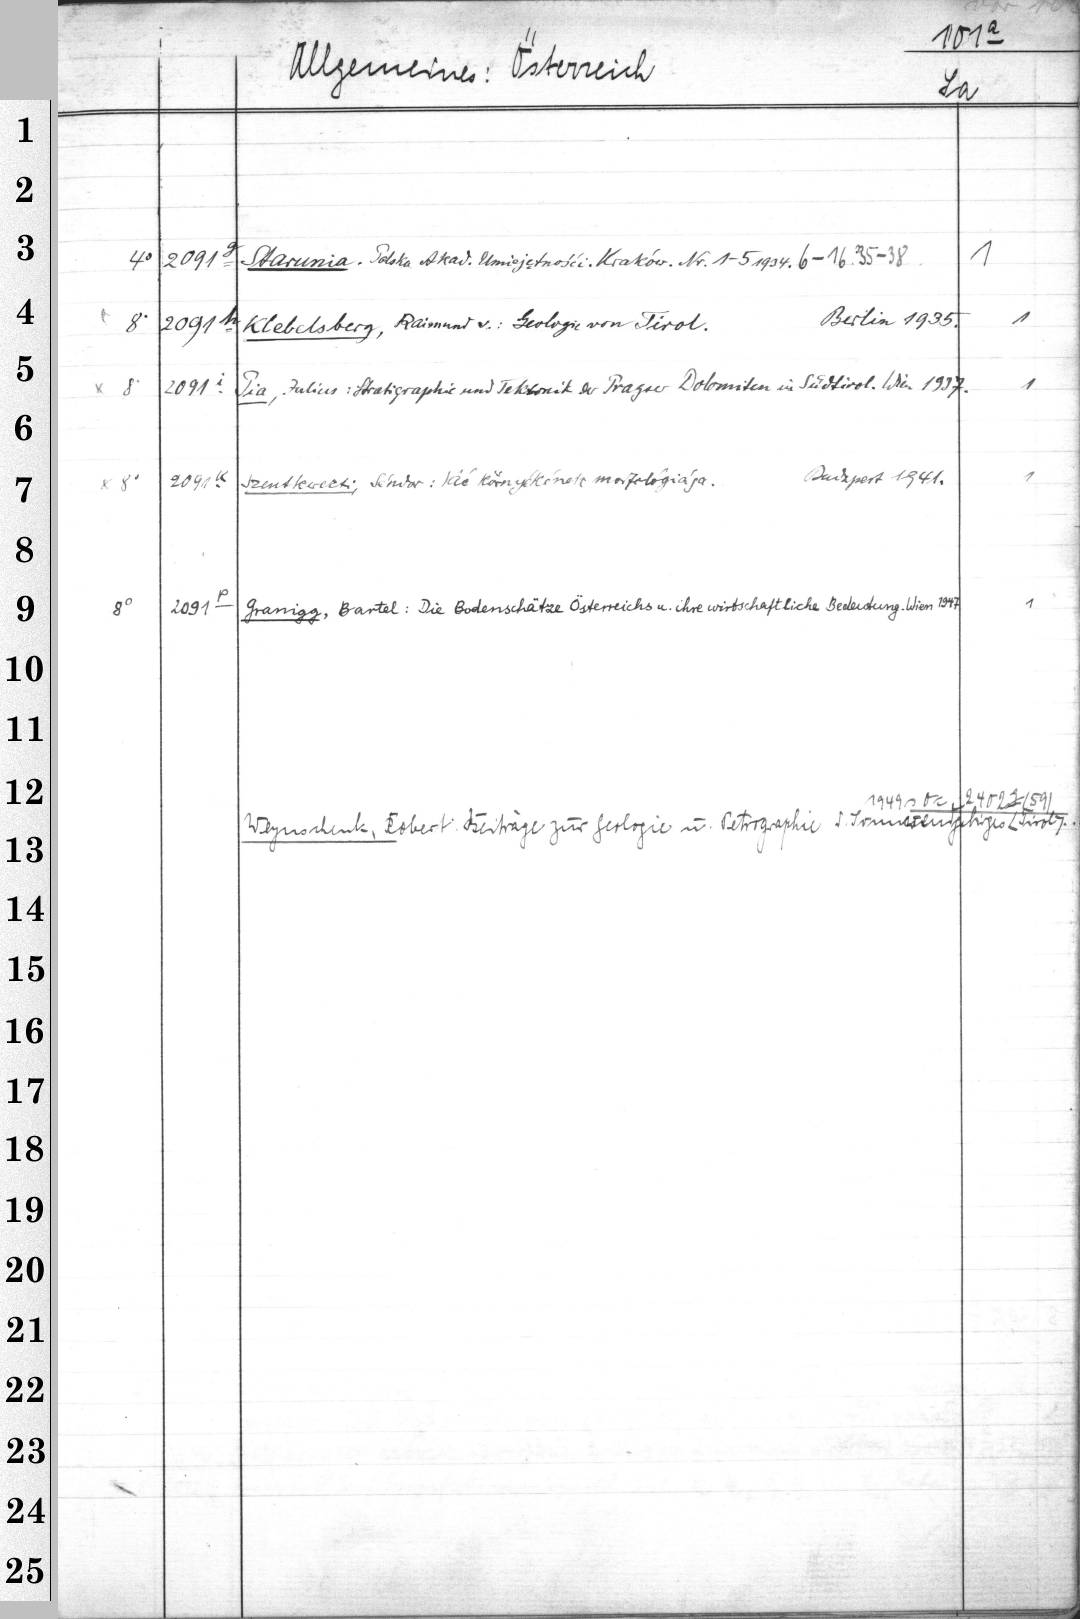 101a
Allgemeines: Österreich
La
1
2
3
4° 2091g Starunia. Polska Akad. Umiejętności. Kraków. Nr. 1-5 1934. 6-16 35-38 1
4
8° 2091h Klebelsberg, Raimund v.: Geologie von Tirol. Berlin 1935. 1
5
x 8° 2091i Pia, Julius: Stratigraphie und Tektonik der Pragser Dolomiten in Südtirol. Wien 1937. 1
6
7
x 8° 2091k Sándor: környékének morfológiája. Budapest 1941. 1
8
9
8° 2091p Granigg, Bartel: Die Bodenschätze Österreichs u. ihre wirtschaftliche Bedeutung. Wien 1947 1
10
11
12
1949 24022 (59)
Weynschenk, Robert. Beiträge zur Geologie u. Petrographie d. Sonnwendgebirges (Tirol).
13
14
15
16
17
18
19
20
21
22
23
24
25